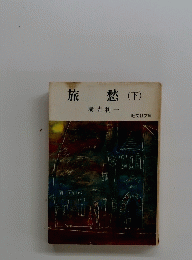 旅愁（下）
横光利一